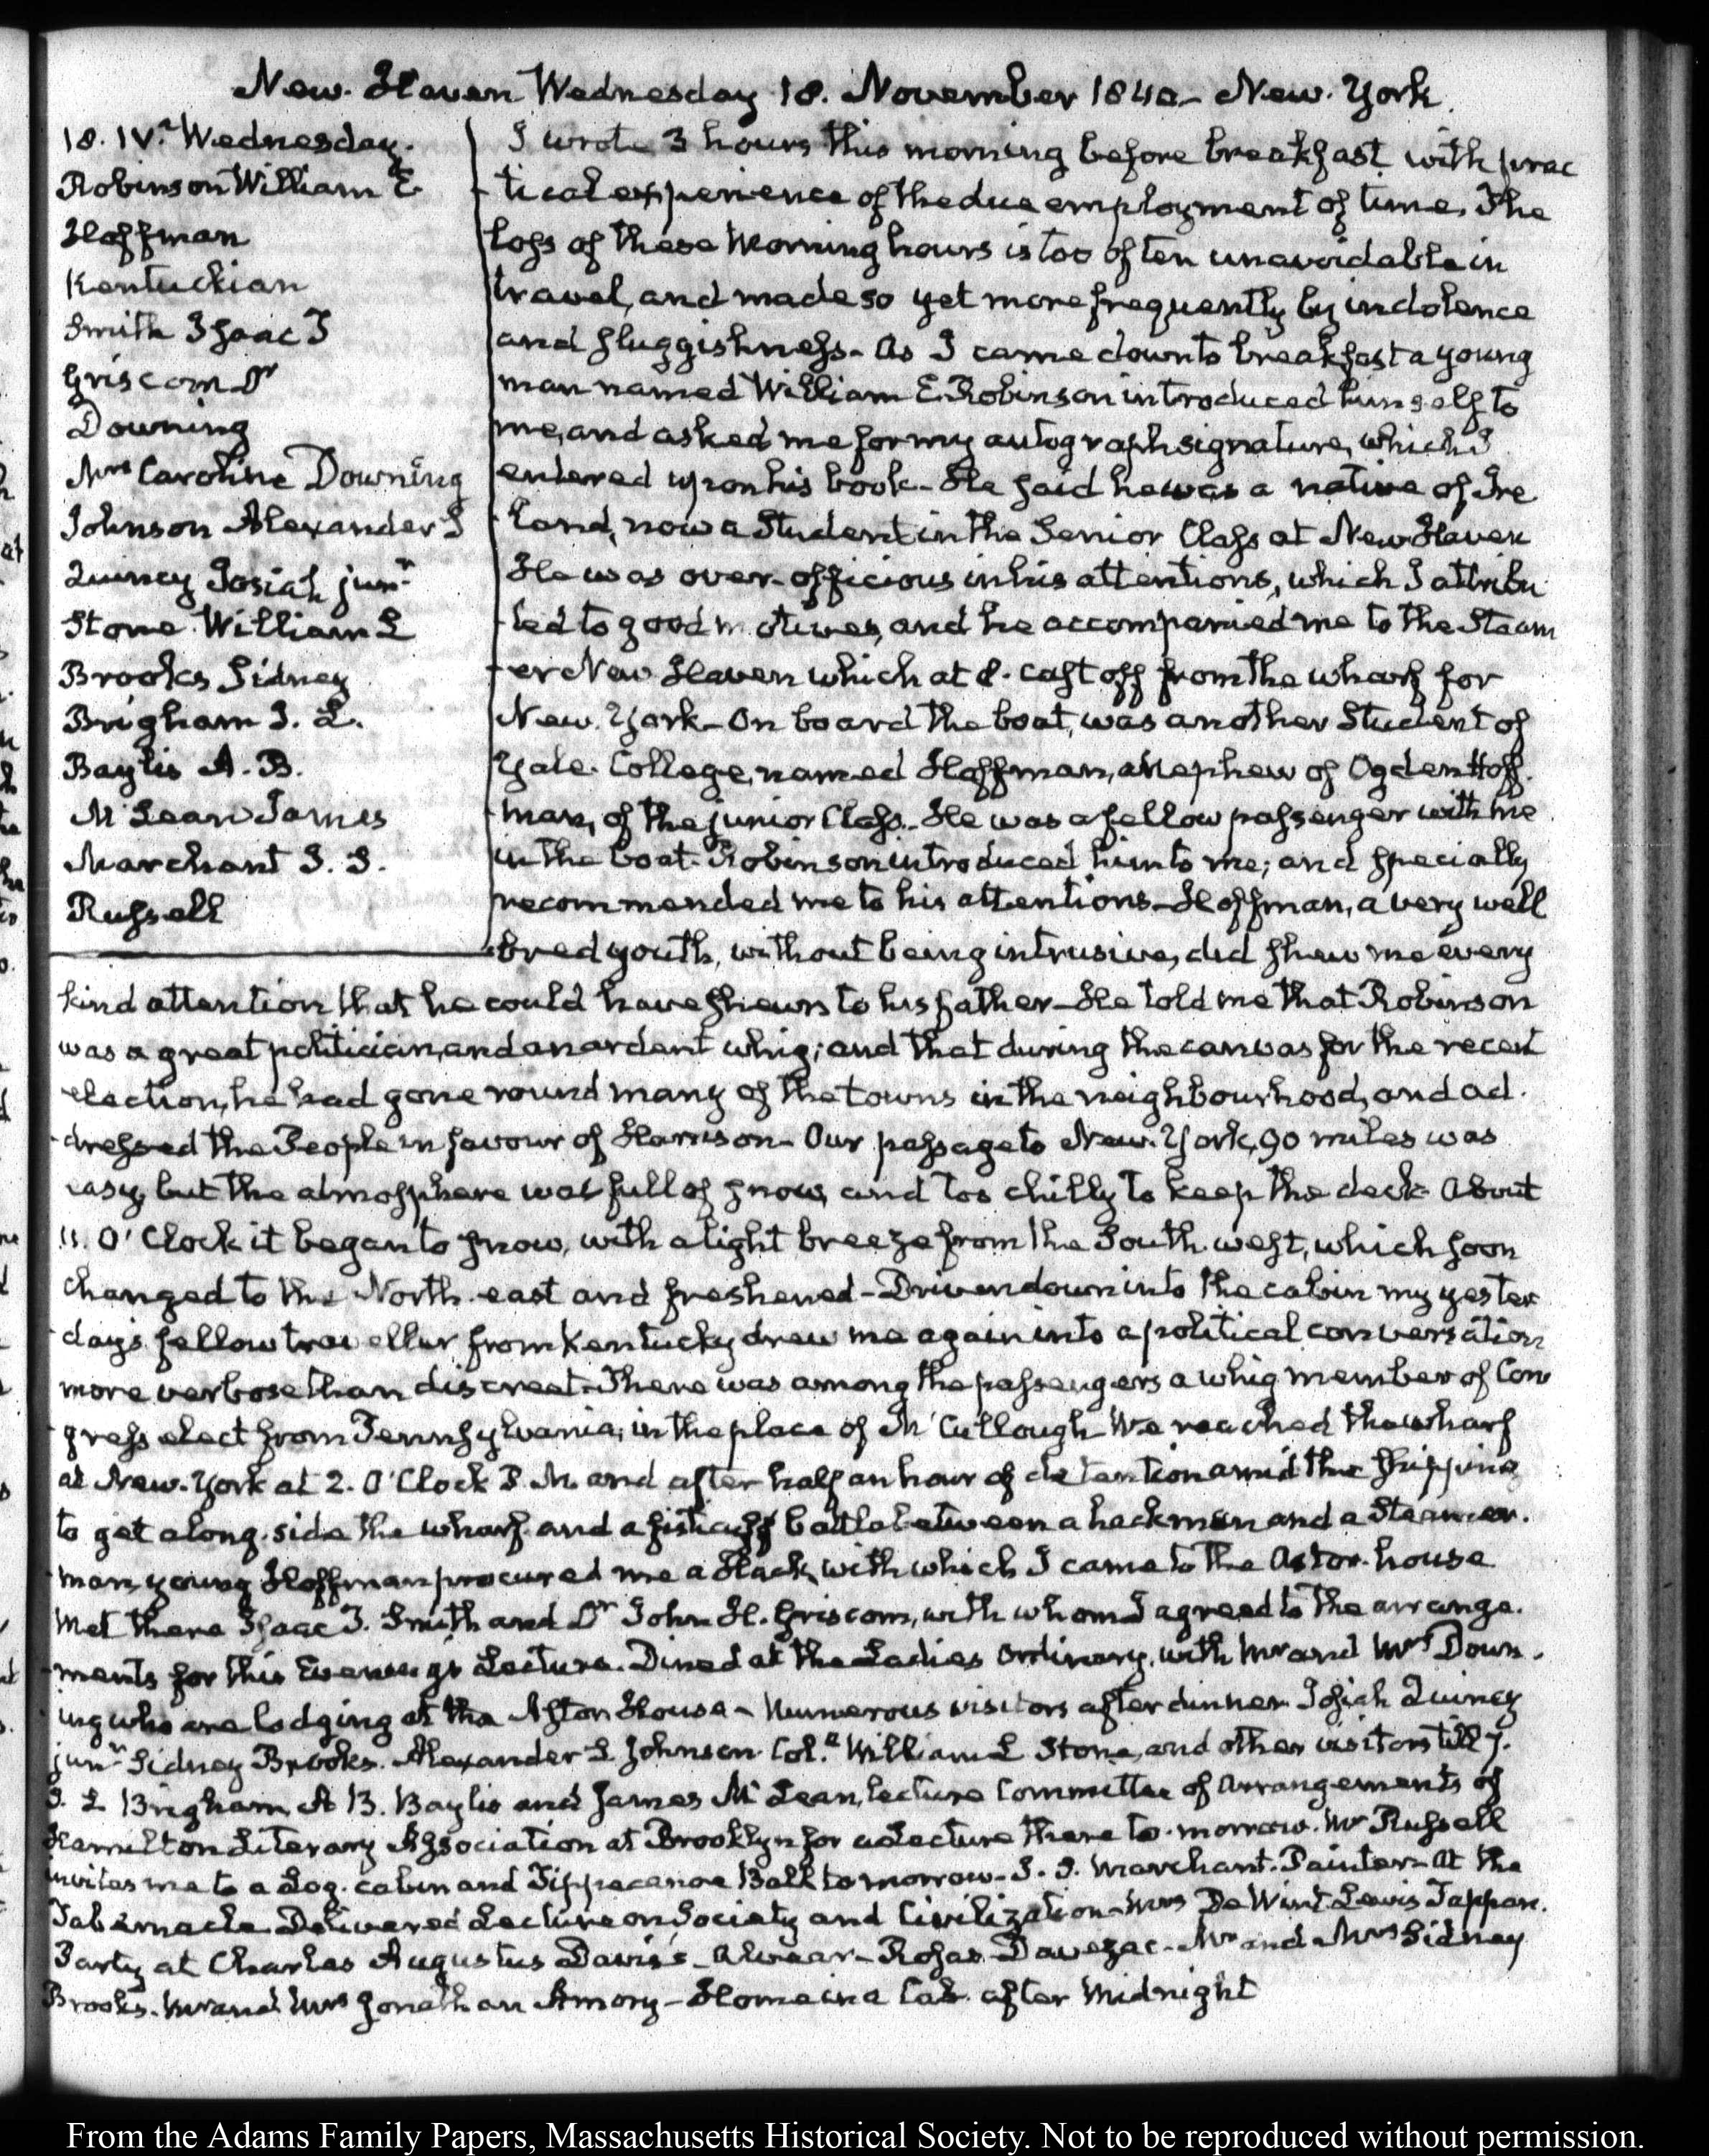 New-Haven Wednesday 18. November 1840- New-York.
18. IV. Wednesday.
Robinson William E
Hoffman
Kentuckian
Smith Isaac T
Griscom Dr
Downing
Mrs Caroline Downing
Johnson Alexander S
Quincy Josiah junr
Stone William L
Brooks Sidney
Brigham J. L.
Baylis A. B.
McLean James
Marchant
Russell
I wrote 3 hours this morning before breakfast with prac
tical experience of the due employment of time. The
loss of these Morning hours is too often unavoidable in
travel, and made so yet more frequently by indolence
and sluggishness- As I came down to breakfast a young
man named William E. Robinson introduced himself to
me, and asked me for my autograph signature, which I
entered upon his book- He said he was a native of Ire
land, now a Student in the Senior Class at New Haven
He was over-officious in his attentions, which I attribu
ted to good motives, and he accompanied me to the Steam
er New Haven which at 8. cast off from the wharf for
New-York- On board the boat, was another Student of
Yale-College, named Hoffman, a Nephew of Ogden Hoff-
man, of the junior Class- He was a fellow passenger with me
in the boat- Robinson introduced him to me; and specially
recommended me to his attentions- Hoffman, a very well
bred youth, without being intrusive, did shew me every
kind attention that he could have shewn to his father- He told me that Robinson
was a great politician, and an ardent whig; and that during the canvas for the recent
election, he had gone round many of the towns in the neighbourhood, and ad-
dressed the People in favour of Harrison- Our passage to New-York, 90 miles was
easy, but the atmosphere was full of snow, and too chilly to keep the deck- About
11. O'Clock it began to snow, with a light breeze from the South-west, which soon
changed to the North-east and freshened- Driven down into the cabin my yester
day's fellow traveller from Kentucky drew me again into a political conversation
more verbose than discreet- There was among the passengers a whig member of Con
gress elect from Pennsylvania; in the place of McCullough- We reached the wharf
at New-York at 2. O'Clock P. M. and after half an hour of detention amid the shipping
to get along-side the wharf and a fisticuff battle between a hackman and a Steamer-
man, young Hoffman procured me a Hack, with which I came to the Astor-house
Met there Isaac T. Smith and Dr John H. Griscom, with whom I agreed to the arrange-
ments for this Evening's Lecture. Dined at the Ladies Ordinary, with Mr and Mrs Down-
ing who are lodging at the Astor House- Numerous visitors after dinner- Josiah Quincy
junr Sidney Brooks. Alexander S Johnson- Coll. William L Stone, and other visitors till 7.
J. L Brigham, A B. Baylis and James McLean, lecture Committee of Arrangements of
Hamilton Literary Association at Brooklyn for a Lecture there to-morrow. Mr Russell
invites me to a Log-cabin and Tippecanoe Ball to morrow- Marchant- Painter- At the
Tabernacle Delivered Lecture on Society and Civilization- Mrs De Wint- Lewis Tappan.
Party at Charles Augustus Davis's- Alvear- Rosas- Davezac- Mr and Mrs Sidney
Brooks- Mr and Mrs Jonathan Amory- Home in a Cab after Midnight
From the Adams Family Papers, Massachusetts Historical Society. Not to be reproduced without permission.